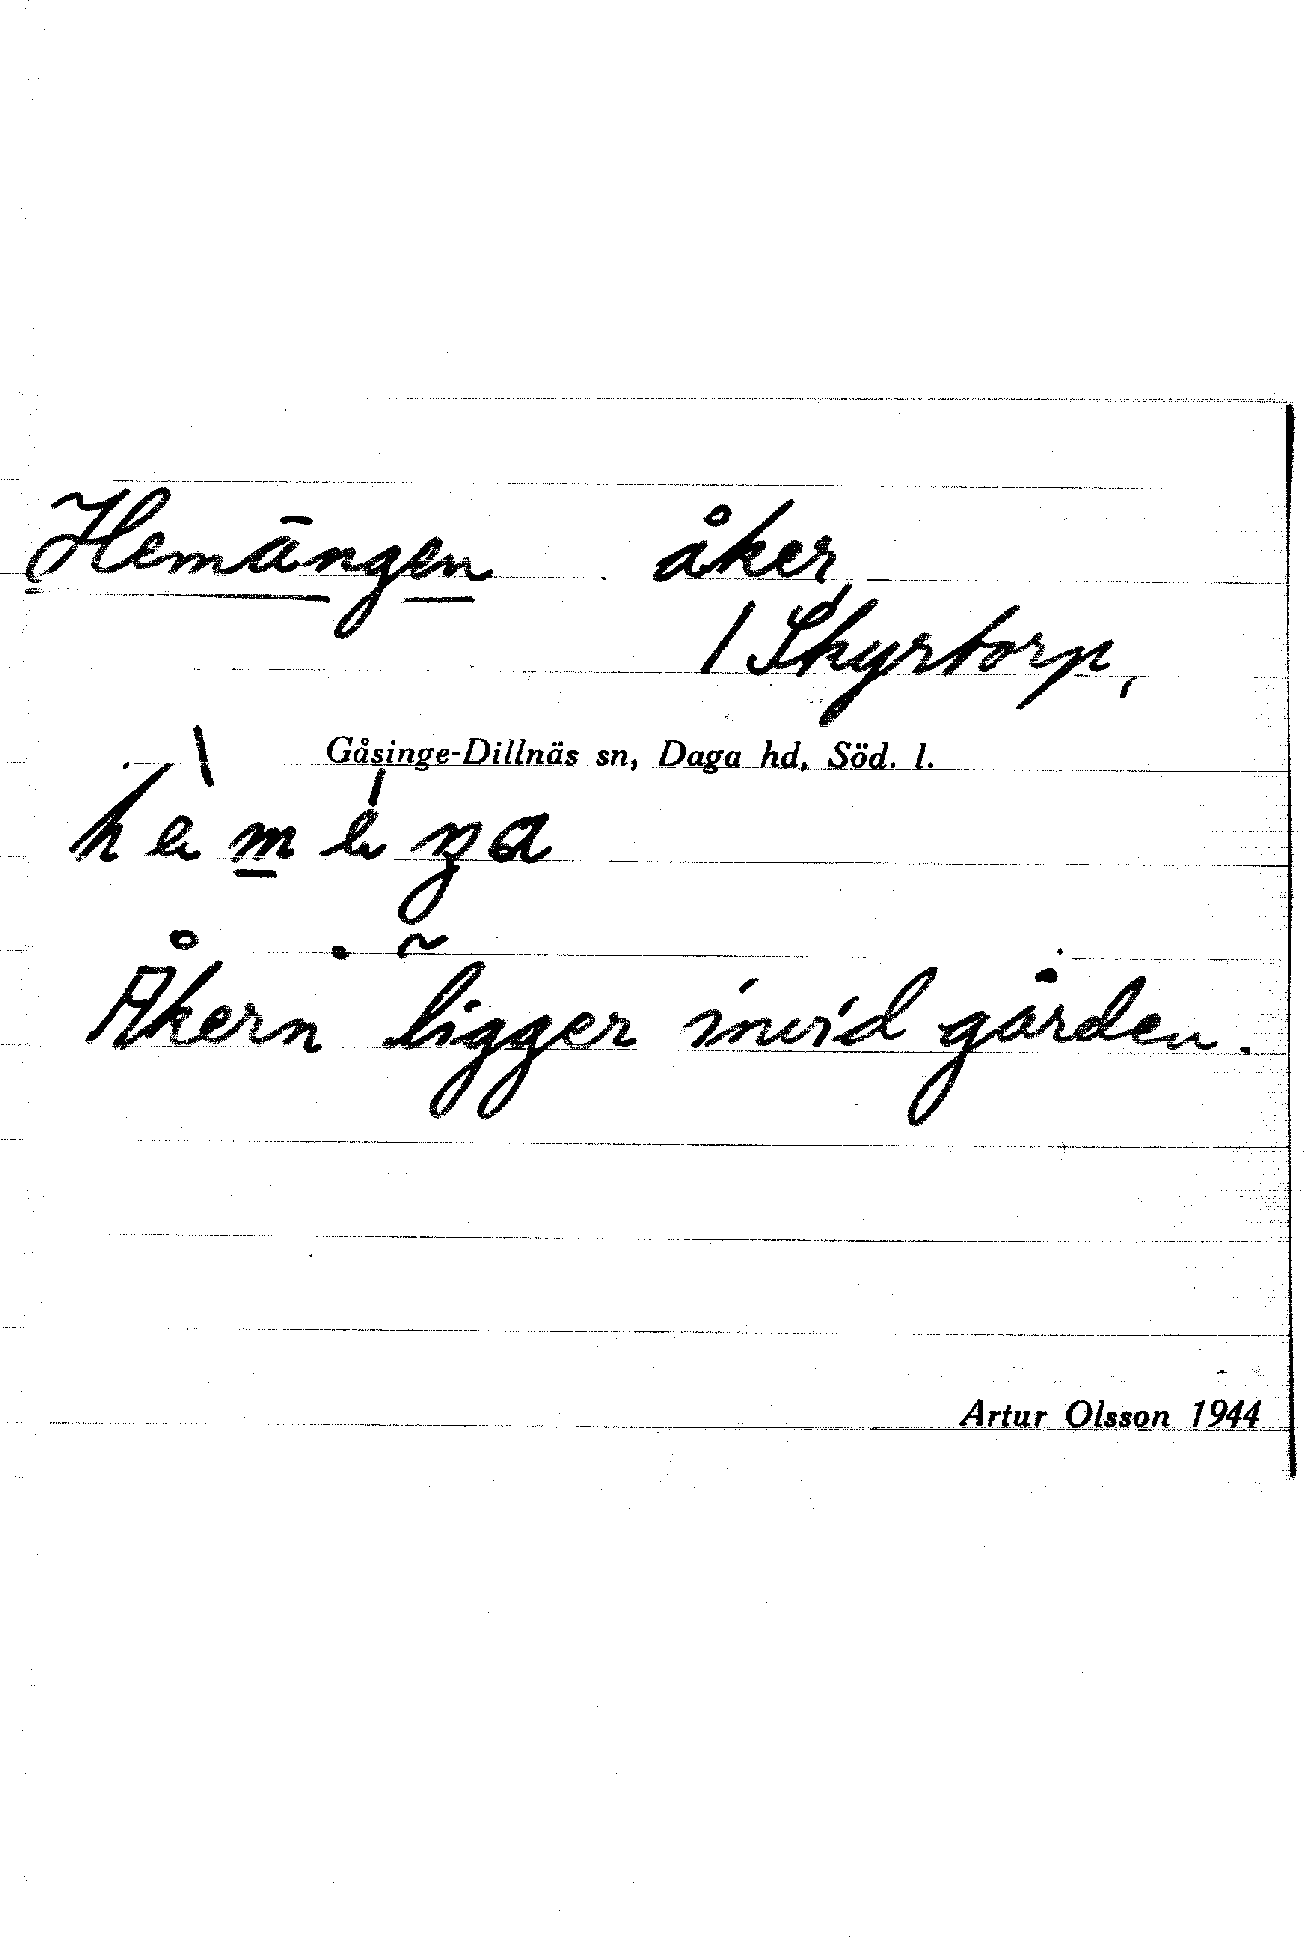 Hemängen åker,
/ Skyrtorp,
Gåsinge-Dillnäs sn, Daga hd, Söd. l.
Åkern ligger invid gården.
Artur Olsson 1944